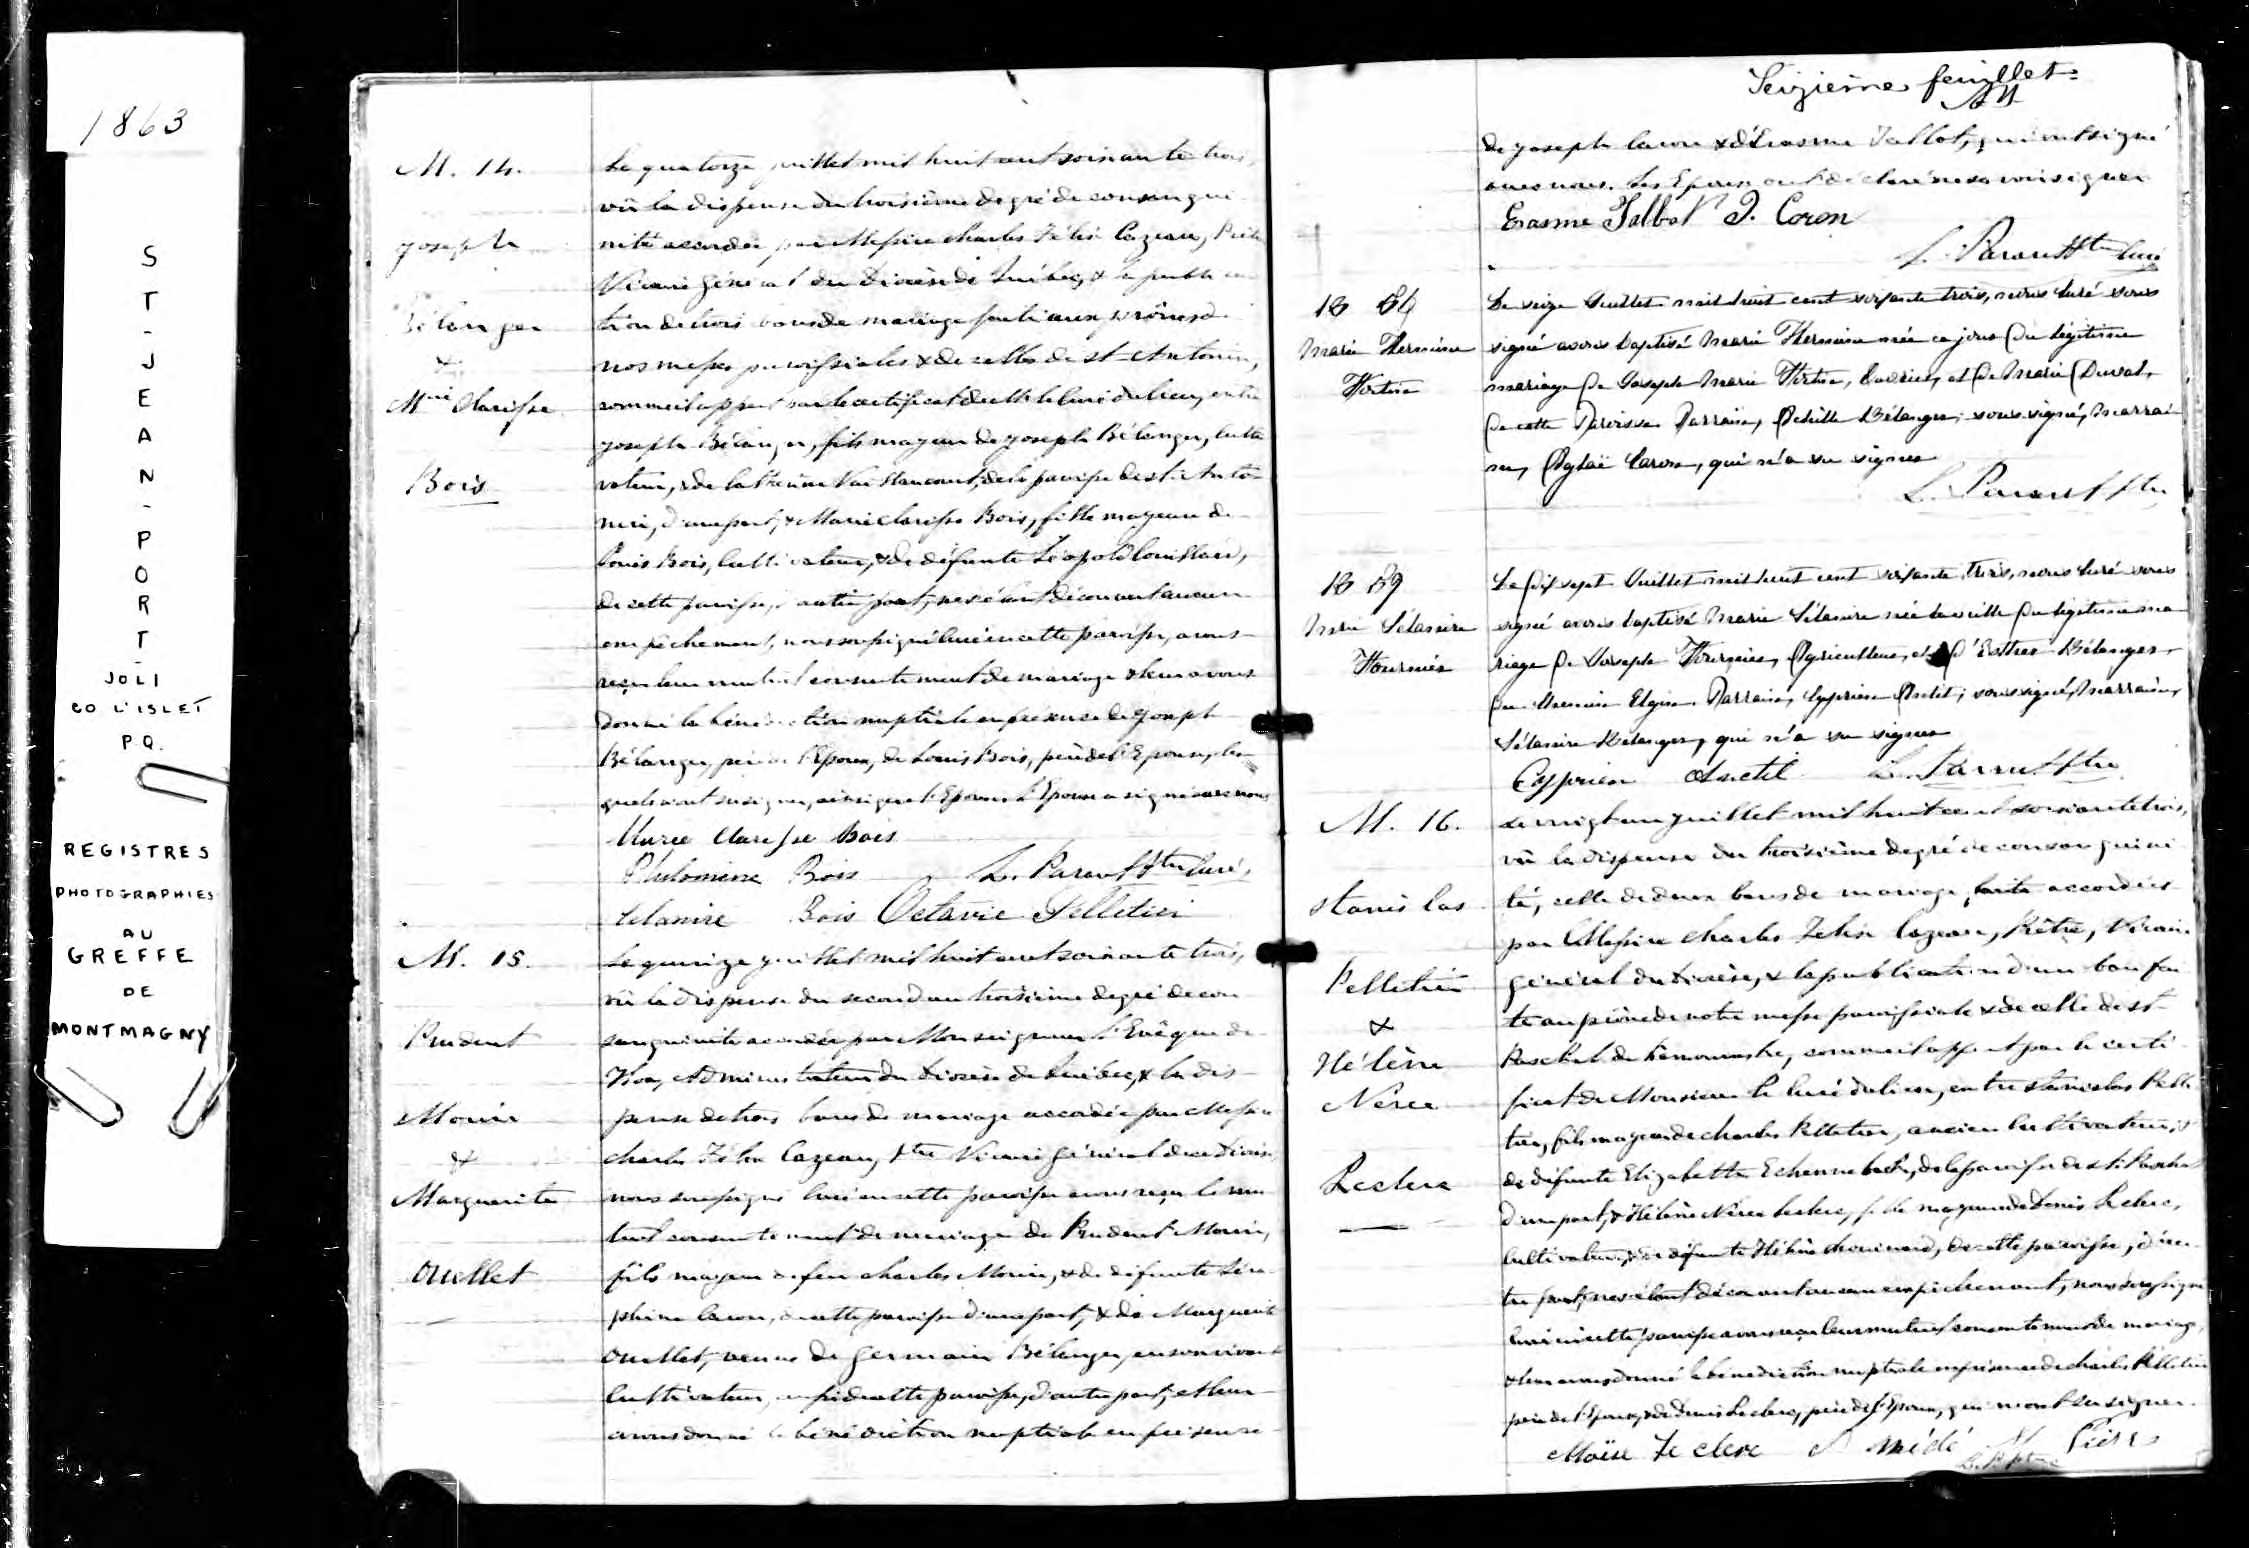 1863
ST-JEAN-PORT-
JOLI
CO L'ISLET
P.Q.
REGISTRES
PHOTOGRAPHIES
AU
GREFFE
DE
MONTMAGNY
M. 14.
Joseph
Bélanger
&
Mrie Clarisse
Bois
Le quatorze juillet mil huit cent soixante trois,
vû la dispense du troisième degré de consangui
nité accordée par Messire Charles Félix Cazeau, Prêtre
Vicaire Général du Diocèse de Québec, & la publica
tion de trois bans de mariage faite aux prônes de
nos messes paroissiales & de celles de St Antonin,
comme il appert par le certificat de Mr le Curé du lieu, entre
Joseph Bélanger, fils majeur de Joseph Bélanger, Culti
vateur, & de de la paroisse de St Anto
nin, d'une part, & Marie Clarisse Bois, fille majeure de
Louis Bois, Cultivateur, & de défunte
de cette paroisse, d'autre part, ne s'étant découvert aucun
empêchement, nous soussigné Curé de cette paroisse, avons
reçu leur mutuel consentement de mariage & leur avons
donné la bénédiction nuptiale en présence de Joseph
Bélanger, père de l'Epoux, de Louis Bois, père de l'Epouse, les
quels n'ont su signer, ainsi que l'Epoux. L'Epouse a signé avec nous
Marie Clarisse Bois
Philomène Bois L. Parant Ptre Curé,
Zelanire Bois Octavie Pelletier
M. 15.
Prudent
Morin
&
Marguerite
Ouellet
Le quinze juillet mil huit cent soixante trois,
vû la dispense du second au troisième degré de con
sanguinité accordée par Monseigneur l'Evêque de
Tloa, Administrateur du Diocèse de Québec, & la dis
pense de trois bans de mariage accordée par Messire
Charles Félix Cazeau, Ptre Vicaire Général de ce Diocèse
nous soussigné Curé de cette paroisse avons reçu le mu
tuel consentement de mariage de Prudent Morin,
fils majeur de feu Charles Morin, & de défunte Séra
phine Caron, de cette paroisse d'une part, & de Marguerite
Ouellet, veuve de Germain Bélanger, en son vivant
Cultivateur, de cette paroisse, d'autre part, et leur
avons donné la bénédiction nuptiale en présence
Seizième feuillet
de Joseph Caron & d'Erasme Talbot, qui ont signé
avec nous. Les Epoux ont déclaré ne savoir signer
Erasme Talbot J. Caron
L. Parant Ptre Curé
B
Marie Hermine
Fortin
Le seize Juillet mil huit cent soixante trois, nous Curé sous
signé avons baptisé Marie Hermine née ce jour du légitime
mariage de Joseph Marie Fortin, et de Marie Duval,
de cette Paroisse. Parrain, Achille Bélanger, soussigné, Marrai
ne, Aglaë Caron, qui n'a su signer
L. Parant Ptre
B 59
Marie Zélanire
Fournier
Le dix sept Juillet mil huit cent soixante trois, nous Curé sous
signé avons baptisé Marie Zélanire née la veille du légitime ma
riage de Joseph Fournier, Agriculteur, et d'Esther Bélanger
du Elgin. Parrain, Cyprien Anctil, soussigné, Marraine,
Zélanire Bélanger, qui n'a su signer
Cyprien Anctil L. Parant Ptre
M. 16.
Stanislas
Pelletier
&
Hélène
Nérée
Leclerc
Le vingt un juillet mil huit cent soixante trois,
vû la dispense du troisième degré de consanguini
té, celle de deux bans de mariage, accordées
par Messire Charles Félix Cazeau, Prêtre, Vicaire
général du Diocèse, & la publication d'un ban fai
te au prône de notre messe paroissiale & de celle de St
Paschal de Kamouraska, comme il appert par le certi
ficat de Monsieur le Curé du lieu, entre Stanislas Pelle
tier, fils majeur de Charles Pelletier, ancien Cultivateur, &
de défunte Elizabeth de la paroisse de St Paschal
d'une part, & Hélène Nérée Leclerc, fille majeure de Denis Leclerc,
Cultivateur, & de défunte Hélène Chouinard, de cette paroisse, d'au
tre part, ne s'étant découvert aucun empêchement, nous soussigné
Curé de cette paroisse avons reçu leur mutuel consentement de mariage,
& leur avons donné la bénédiction nuptiale en présence de Charles Pelletier
père de l'Epoux, & de Denis Leclerc, père de l'Epouse, qui n'ont su signer.
Moïse Leclerc